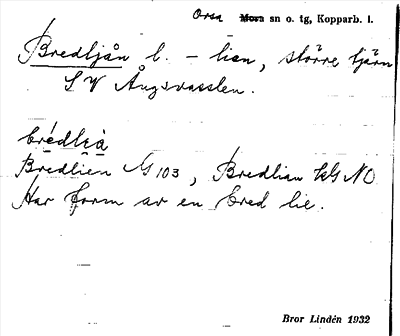 Orsa Mora sn o. tg, Kopparb. l.
Bredljån l. - lien, större tjärn
SW Ångsvasslen.
Bredlien NG 103, Bredlian kG NO
Har form av en bred lie.
Bror Lindén 1932